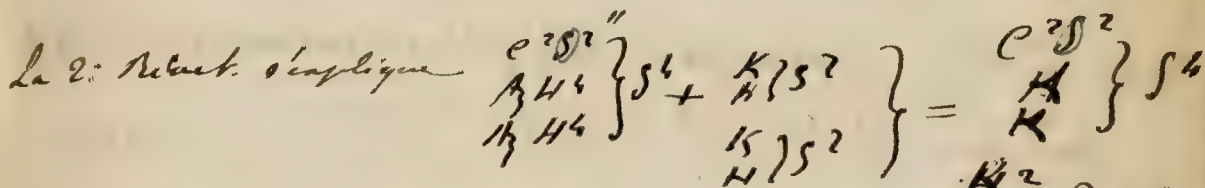 La 2e Réact. s'explique C²S²" AzH⁴ AzH⁴ } S⁴ + K H } S² K H } S² } = C²S² K K } S⁴